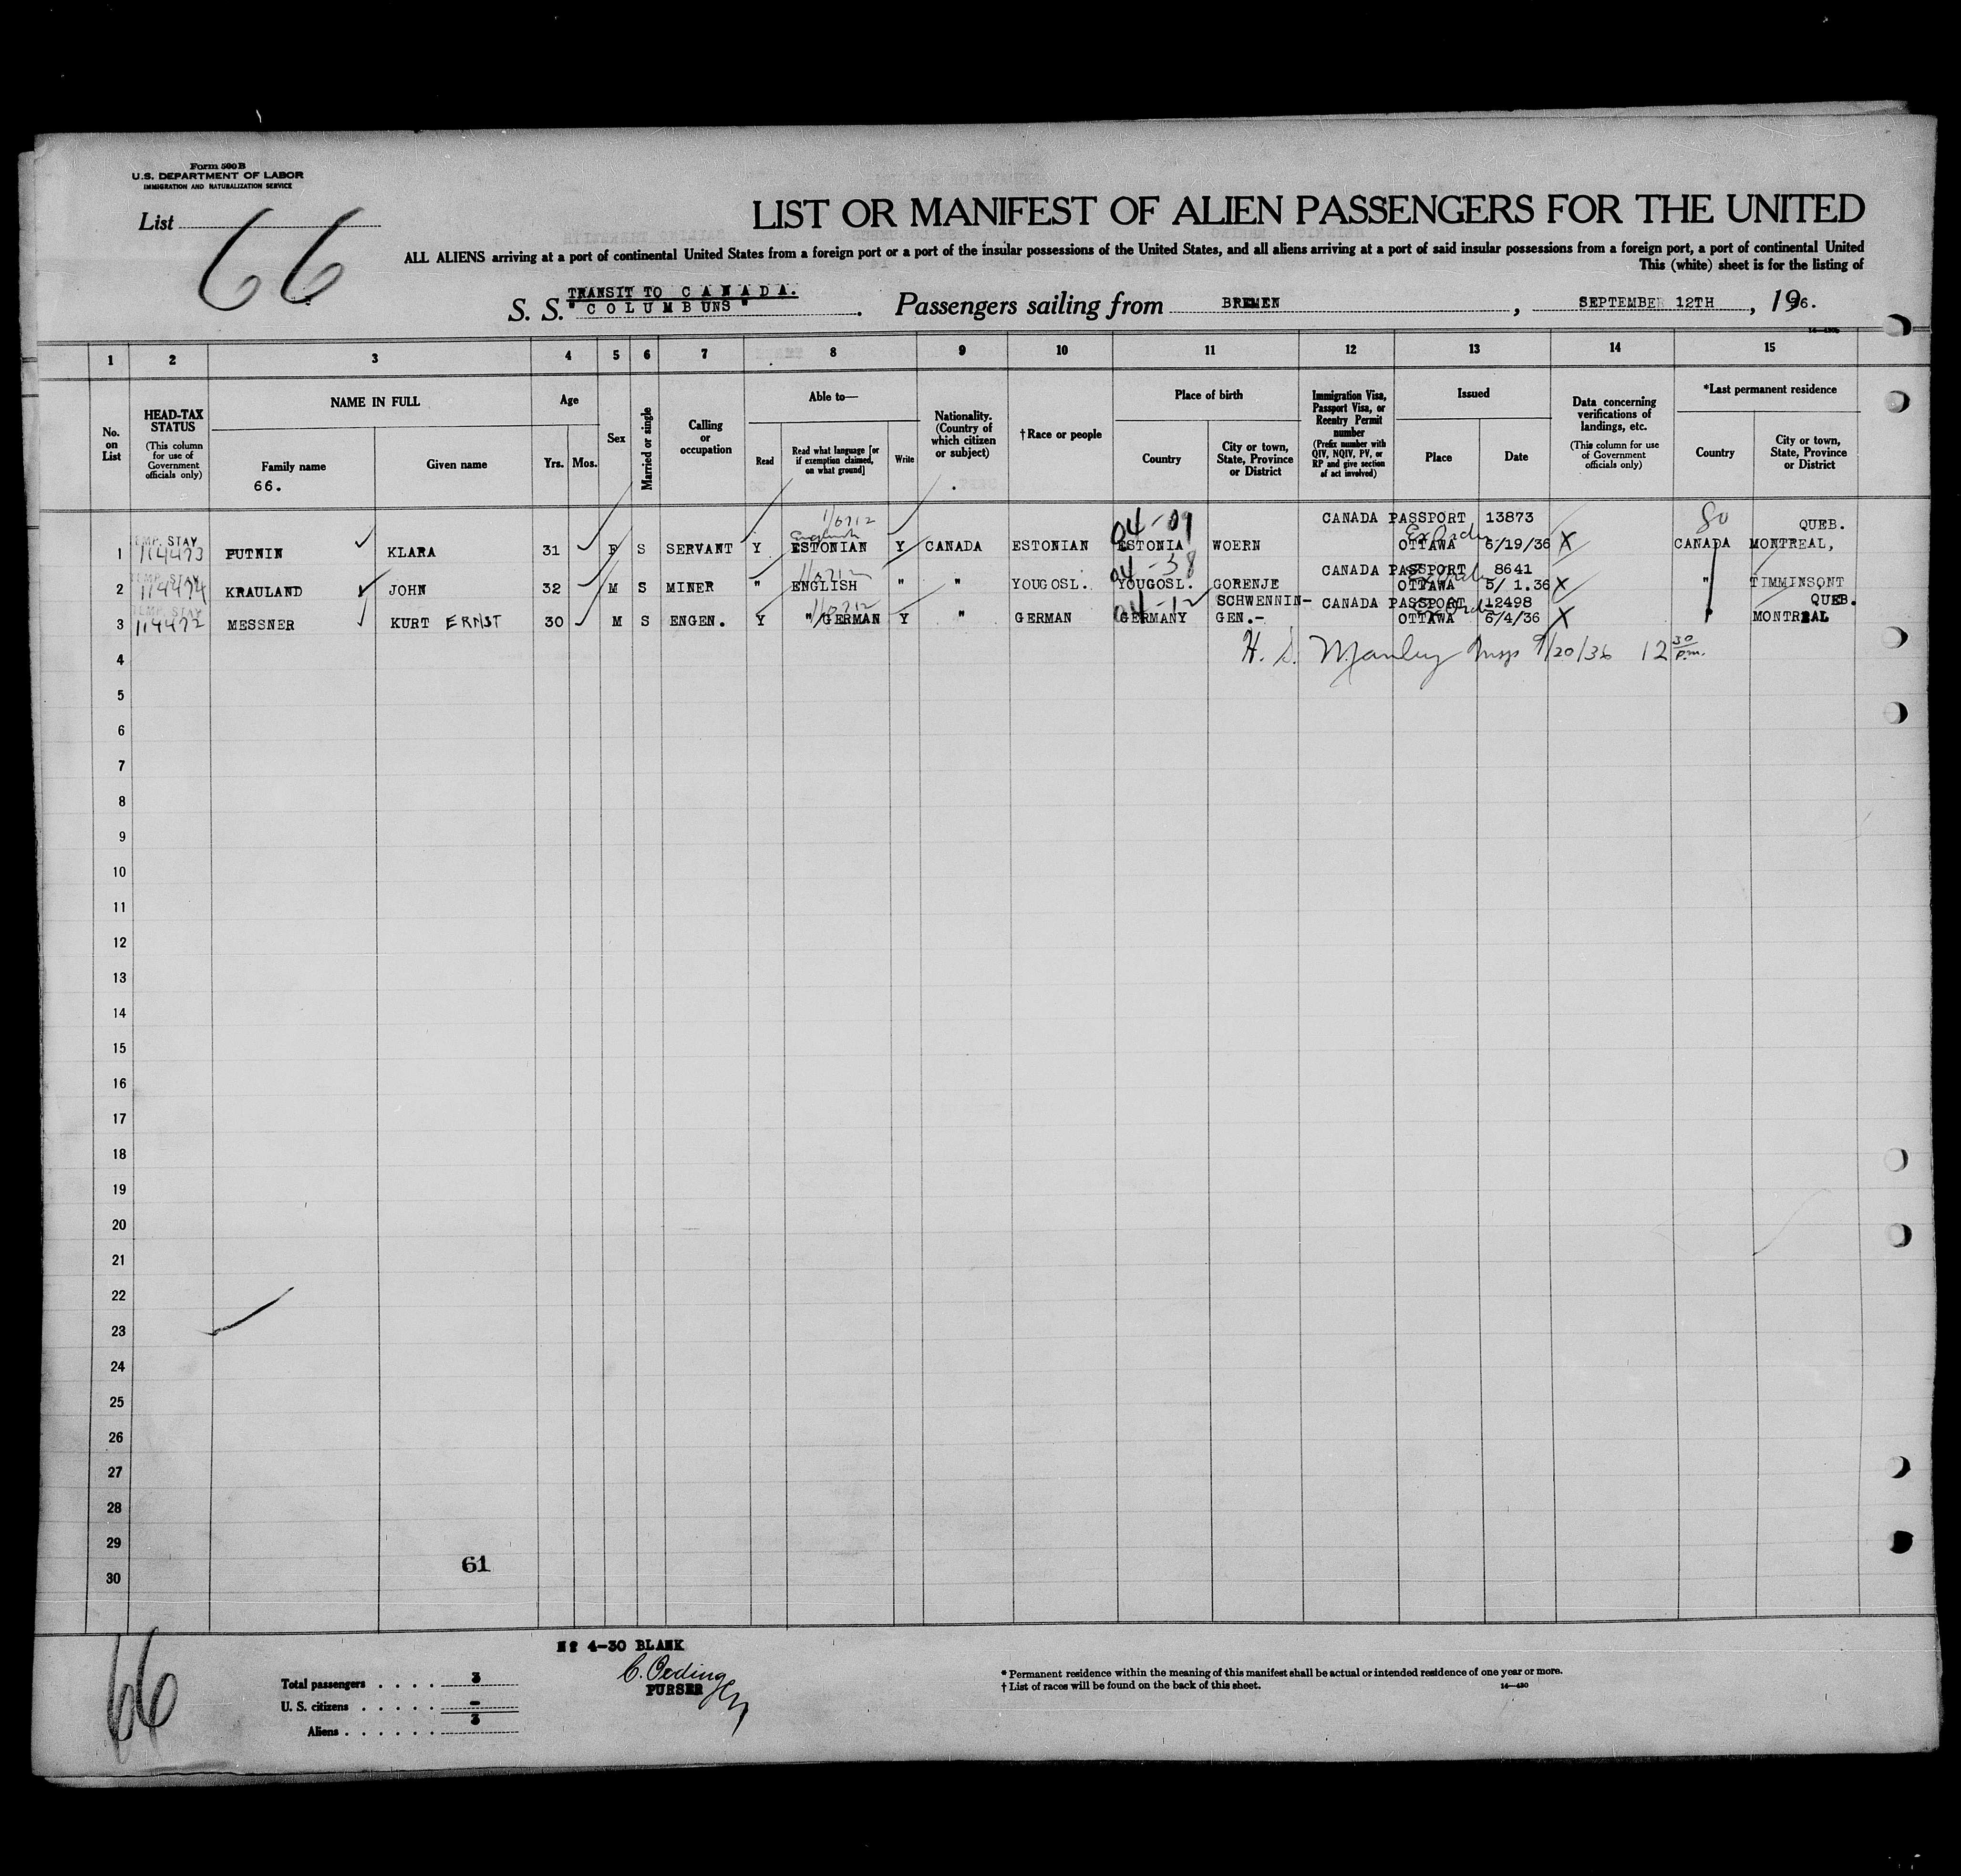 Form 500 B
U.S. DEPARTMENT OF LABOR
IMMIGRATION AND NATURALIZATION SERVICE
List 66
LIST OR MANIFEST OF ALIEN PASSENGERS FOR THE UNITED
ALL ALIENS arriving at a port of continental United States from a foreign port or a port of the insular possessions of the United States, and all aliens arriving at a port of said insular possessions from a foreign port, a port of continental United
This (white) sheet is for the listing of
TRANSIT TO CANADA.
S. S. "COLUMBUNS" . Passengers sailing from BREMEN , SEPTEMBER 12TH , 1936.
1 2 3 4 5 6 7 8 9 10 11 12 13 14 15
No. on List
HEAD-TAX STATUS
(This column for use of Government officials only)
NAME IN FULL
Family name
66.
Given name
Age
Yrs. Mos.
Sex
Married or single
Calling or occupation
Able to—
Read
Read what language [or if exemption claimed, on what ground]
Write
Nationality. (Country of which citizen or subject)
†Race or people
Place of birth
Country
City or town, State, Province or District
Immigration Visa, Passport Visa, or Reentry Permit number
(Prefix number with QIV, NQIV, PV, or RP and give section of act involved)
Issued
Place
Date
Data concerning verifications of landings, etc.
(This column for use of Government officials only)
*Last permanent residence
Country
City or town, State, Province or District
English 04-09 CANADA PASSPORT 13873 80 QUEB.
1 TEMP. STAY 114473 PUTNIN KLARA 31 F S SERVANT Y ESTONIAN Y CANADA ESTONIAN ESTONIA WOERN OTTAWA 6/19/36 X CANADA MONTREAL,
04-38 CANADA PASSPORT 8641
2 TEMP. STAY 114474 KRAULAND JOHN 32 M S MINER " ENGLISH " " YOUGOSL. YOUGOSL. GORENJE OTTAWA 5/ 1.36 X " TIMMINSONT
04-12 SCHWENNIN- CANADA PASSPORT 12498 QUEB.
3 TEMP. STAY 114472 MESSNER KURT ERNST 30 M S ENGEN. Y "/GERMAN Y " GERMAN GERMANY GEN.- OTTAWA 6/4/36 X " MONTREAL
4 H. S. Manley Insp 9/20/36 12 30 p.m.
5
6
7
8
9
10
11
12
13
14
15
16
17
18
19
20
21
22
23
24
25
26
27
28
29
61
30
66
Nº 4-30 BLANK
PURSER
Total passengers . . . . 3
U. S. citizens . . . . . -
Aliens . . . . . . 3
* Permanent residence within the meaning of this manifest shall be actual or intended residence of one year or more.
† List of races will be found on the back of this sheet.
14—430